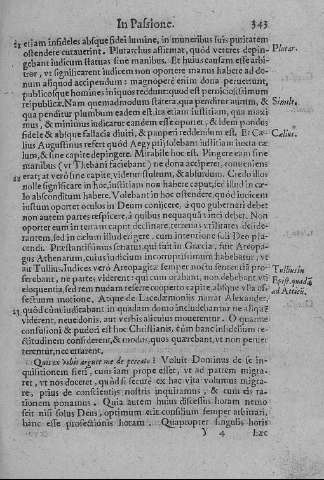 In Passione. 343
etiam infideles absque fidei lumine, in muneribus suis puritatem
ostendere curauerint. Plutarchus affirmat, quòd veteres depin-
gebant iudicum statuas sine manibus. Et huius causam esse arbi-
tror, vt significarent iudicem non oportere manus habere ad do-
num aliquod accipiendum: magnoperè enim dona peruertunt,
publicosque homines iniquos reddunt: quod est perniciosissimum
reipublicæ. Nam quemadmodum statera, qua penditur aurum, &
qua penditur plumbum eadem est: ita etiam iustitiam, qua maxi-
mus, & minimus iudicatur eandem esse oportet, & idem pondus
fidele & absque fallacia diuiti, & pauperi reddendum est. Et Cæ-
lius Augustinus refert quòd Aegyptij solebant iustitiam iuxta cæ-
lum, & sine capite depingere. Mirabile hoc est. Pingere eam sine
manibus (vt Thebani faciebant) ne dona acciperet, conueniens
erat; at verò sine capite, videtur stultum, & absurdum. Credo illos
nolle significare in hoc, iustitiam non habere caput, sed illud in cæ-
lo absconditum habere. Volebant in hoc ostendere, quòd iudicem
iustum oportet oculos in Deum conijcere, à quo gubernari debet
non autem partes respicere, à quibus nequaquàm vinci debet. Non
oportet eum in terram caput declinare, terrenas vtilitates
rantem, sed in cælum illud erigere, cum intentione soli Deo pla-
cendi. Præstantissimus senatus, qui fuit in Græcia, fuit Areopa-
gus Athenarum, cuius iudicium incorruptissimum habebatur, vt
au Tullius. Iudices verò Areopagitæ semper noctu sententiã pro-
ferebant, ne partes viderent: qui cum orabant, non debebant vti
eloquentia, sed rem nudam referre cooperto capite, absque vlla of-
festuum motione. Atque de Lacedæmonijs narrat Alexander,
quòd cùm iudicabant in quadam domo includebantur ne aliquẽ
viderent, neue donis, aut verbis alicuius mouerentur. O quantæ
confusioni & pudori est hoc Christianis, cùm hanc infidelium re-
ctitudinem considerent, & modos, quos quærebant, vt non peruer-
terentur, nec errarent.
Quis ex vobis arguet me de peccato? Voluit Dominus de se in-
quisitionem fieri, cum iam prope esset, vt ad patrem migra-
ret, vt nos doceret, quòd si securè ex hac vita volumus migra-
re, prius de conscientijs nostris inquiramus, & cum eis ra-
tionem ponamus. Quia autem huius discessus horam nemo
scit nisi solus Deus, optimum erit consilium semper arbitrari,
hanc esse profectionis horam. Quapropter singulis horis
y 4 hæc
Plutar.
Simile.
Cælius.
Tullius in
Epist. quadã
ad Atticũ.